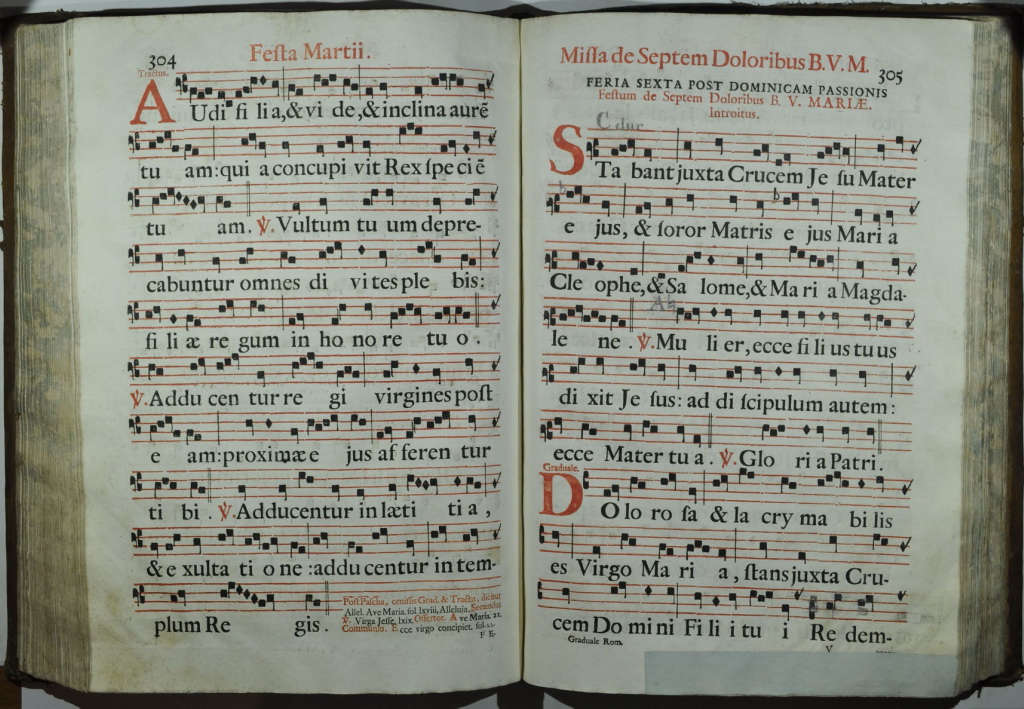 304
Festa Martii.
Tractus.
AUdi fi li a, & vi de, & inclina aurē
tu am: qui a concupi vit Rex ſpe ci ē
tu am. ℣. Vultum tu um depre-
cabuntur omnes di vi tes ple bis:
fi li æ re gum in ho no re tu o.
℣. Addu cen tur re gi virgines poſt
e am: proximæ e jus af feren tur
ti bi. ℣. Adducentur in læti ti a,
& e xulta ti o ne: addu centur in tem-
plum Re gis.
Poſt Paſcha, omiſſis Grad. & Tractu, dicitur
Allel. Ave Maria. fol lxviii, Alleluia. Secundus
℣. Virga Jeſſe, lxix. Offertor. Ave Maria. 21.
Communio. Ecce virgo concipiet. fol.
F E-
Miſſa de Septem Doloribus B. V. M.
305
FERIA SEXTA POST DOMINICAM PASSIONIS
Feſtum de Septem Doloribus B. V. MARIÆ.
Introitus.
C dur
STa bant juxta Crucem Je ſu Mater
e jus, & ſoror Matris e jus Mari a
Cle ophe, & Sa lome, & Ma ri a Magda-
le ne. ℣. Mu li er, ecce fi li us tu us
di xit Je ſus: ad di ſcipulum autem:
ecce Mater tu a. ℣. Glo ri a Patri.
Graduale.
DOlo ro ſa & la cry ma bi lis
es Virgo Ma ri a, ſtans juxta Cru-
cem Do mi ni Fi li i tu i Re dem-
Graduale Rom.
V